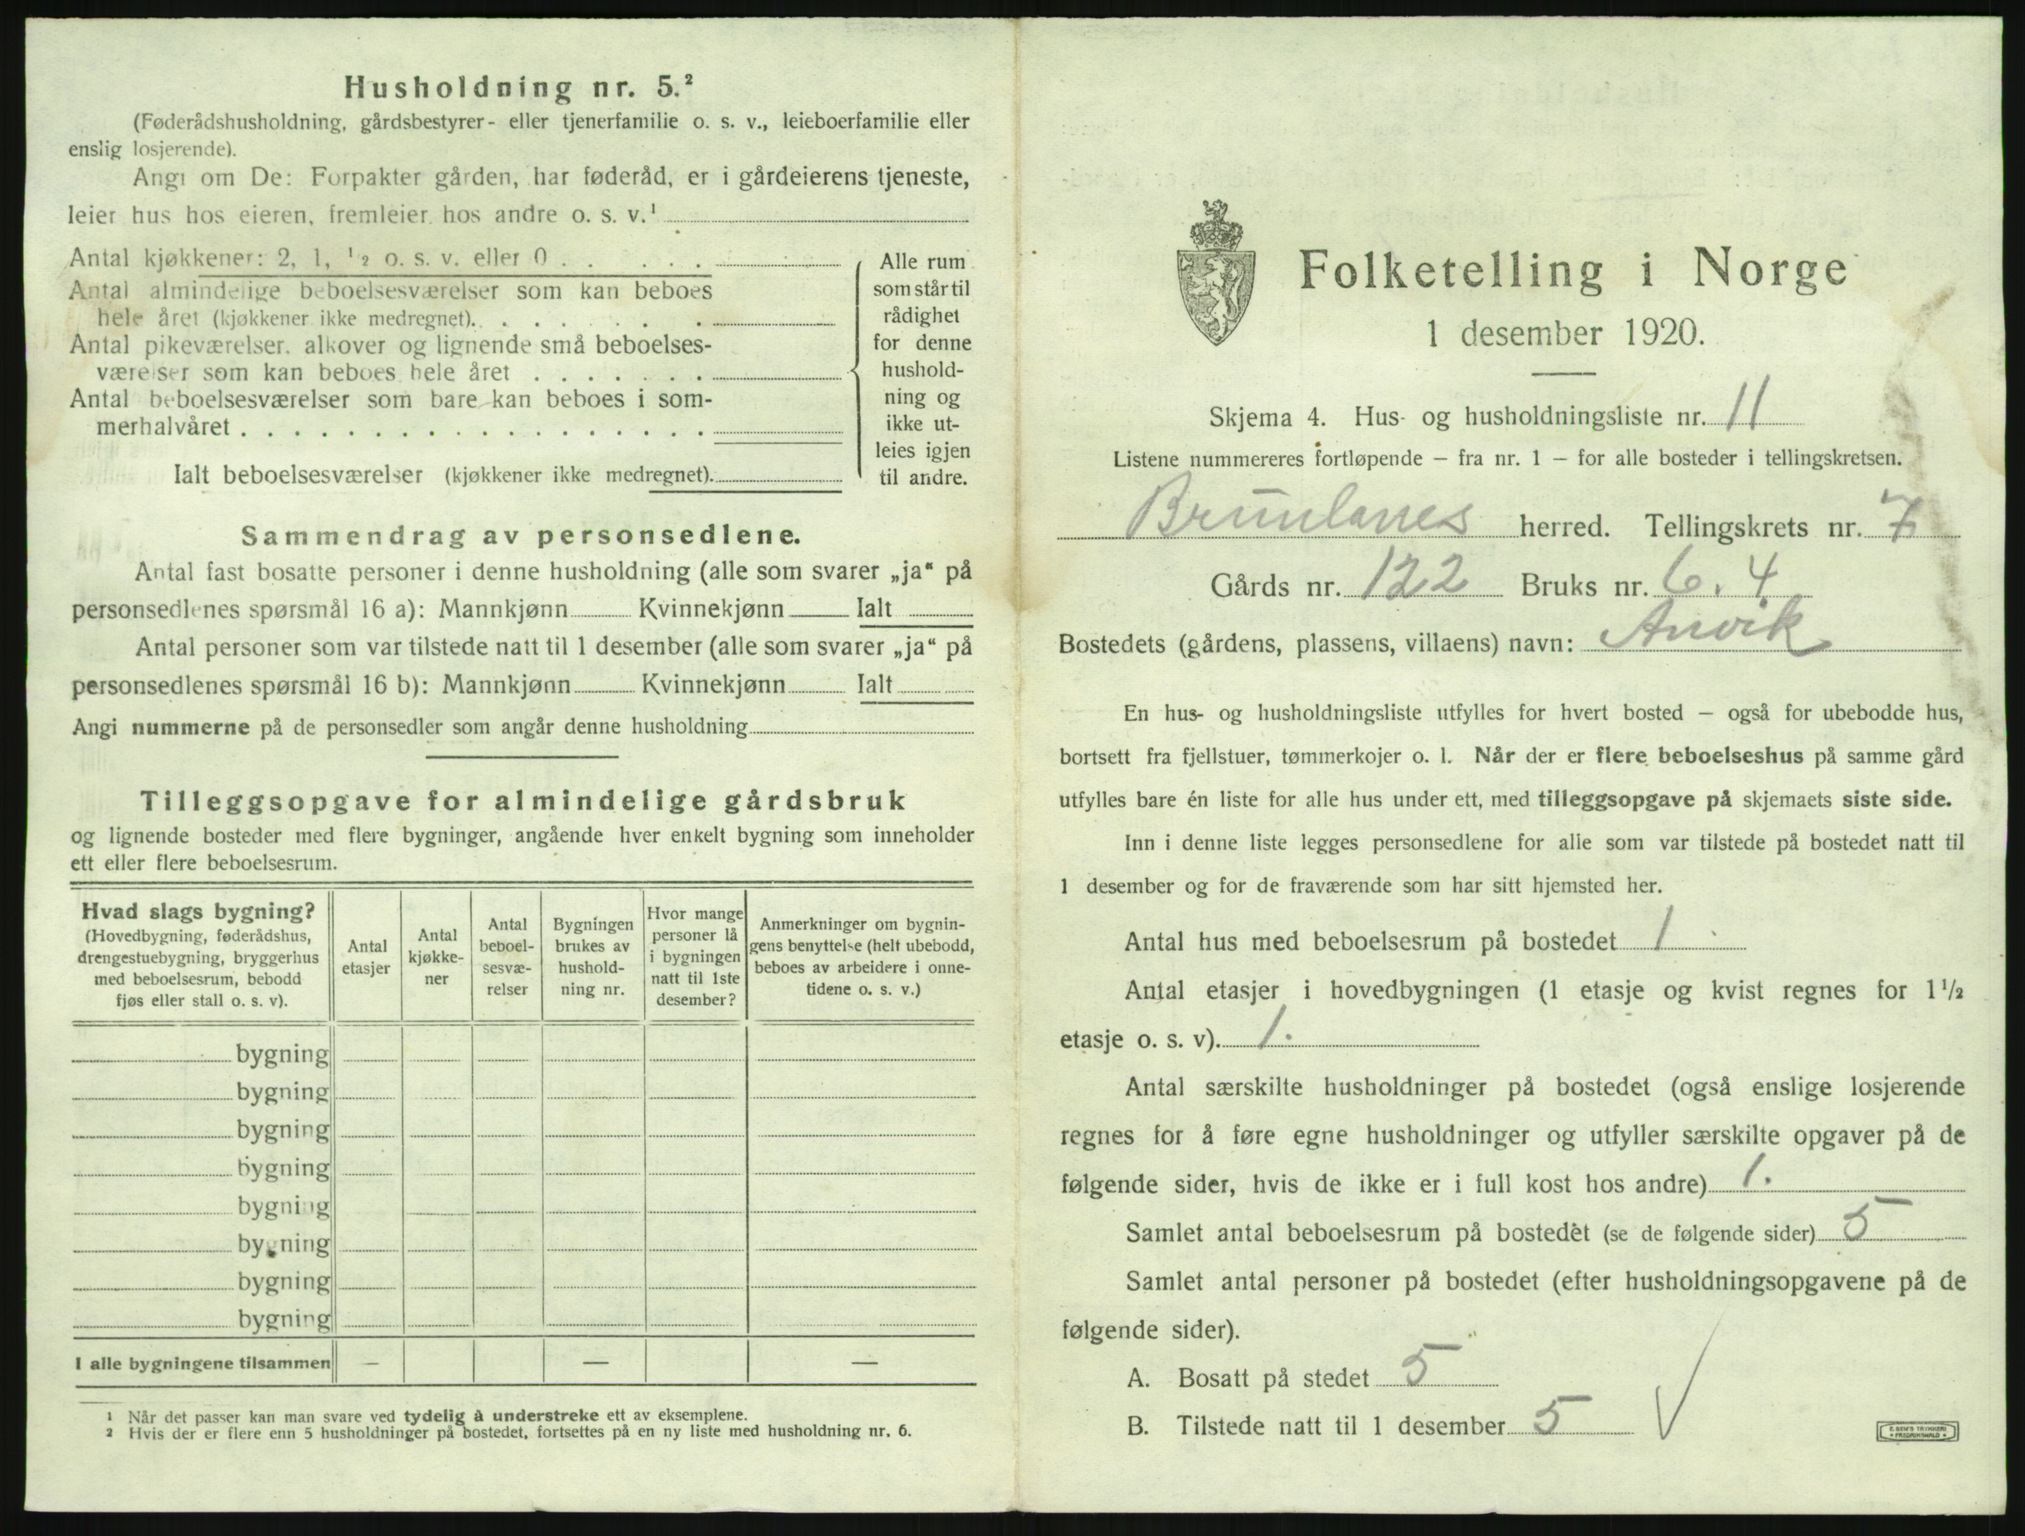 Husholdning nr. 5.²
(Føderådshusholdning, gårdsbestyrer- eller tjenerfamilie o. s. v., leieboerfamilie eller
enslig losjerende).
Angi om De: Forpakter gården, har føderåd, er i gårdeierens tjeneste,
leier hus hos eieren, fremleier hos andre o. s. v.¹
Antal kjøkkener: 2, 1, ½ o. s. v. eller 0 . . . . . .
Antal almindelige beboelsesværelser som kan beboes
hele året (kjøkkener ikke medregnet). . . . . . .
Antal pikeværelser, alkover og lignende små beboelses-
værelser som kan beboes hele året . . . . . . .
Antal beboelsesværelser som bare kan beboes i som-
merhalvåret . . . . . . . . . . . . . . . . . .
Ialt beboelsesværelser (kjøkkener ikke medregnet).
Alle rum
som står til
rådighet
for denne
hushold-
ning og
ikke ut-
leies igjen
til andre.
Sammendrag av personsedlene.
Antal fast bosatte personer i denne husholdning (alle som svarer „ja“ på
personsedlenes spørsmål 16 a): Mannkjønn Kvinnekjønn Ialt
Antal personer som var tilstede natt til 1 desember (alle som svarer „ja“ på
personsedlenes spørsmål 16 b): Mannkjønn Kvinnekjønn Ialt
Angi nummerne på de personsedler som angår denne husholdning
Tilleggsopgave for almindelige gårdsbruk
og lignende bosteder med flere bygninger, angående hver enkelt bygning som inneholder
ett eller flere beboelsesrum.
Hvad slags bygning?
(Hovedbygning, føderådshus,
drengestuebygning, bryggerhus
med beboelsesrum, bebodd
fjøs eller stall o. s. v).
Antal
etasjer
Antal
kjøkke-
ner
Antal
beboel-
sesvæ-
relser
Bygningen
brukes av
hushold-
ning nr.
Hvor mange
personer lå
i bygningen
natt til 1ste
desember?
Anmerkninger om bygnin-
gens benyttelse (helt ubebodd,
beboes av arbeidere i onne-
tidene o. s. v.)
bygning
bygning
bygning
bygning
bygning
bygning
bygning
bygning
I alle bygningene tilsammen — — —
¹ Når det passer kan man svare ved tydelig å understreke ett av eksemplene.
² Hvis der er flere enn 5 husholdninger på bostedet, fortsettes på en ny liste med husholdning nr. 6.
Folketelling i Norge
1 desember 1920.
Skjema 4. Hus- og husholdningsliste nr. 11
Listene nummereres fortløpende – fra nr. 1 – for alle bosteder i tellingskretsen.
Brunlanes herred. Tellingskrets nr. 7
Gårds nr. 122 Bruks nr. 6. 4
Bostedets (gårdens, plassens, villaens) navn: Anvik
En hus- og husholdningsliste utfylles for hvert bosted – også for ubebodde hus,
bortsett fra fjellstuer, tømmerkojer o. l. Når der er flere beboelseshus på samme gård
utfylles bare én liste for alle hus under ett, med tilleggsopgave på skjemaets siste side.
Inn i denne liste legges personsedlene for alle som var tilstede på bostedet natt til
1 desember og for de fraværende som har sitt hjemsted her.
Antal hus med beboelsesrum på bostedet 1
Antal etasjer i hovedbygningen (1 etasje og kvist regnes for 1½
etasje o. s. v). 1.
Antal særskilte husholdninger på bostedet (også enslige losjerende
regnes for å føre egne husholdninger og utfyller særskilte opgaver på de
følgende sider, hvis de ikke er i full kost hos andre) 1.
Samlet antal beboelsesrum på bostedet (se de følgende sider) 5
Samlet antal personer på bostedet (efter husholdningsopgavene på de
følgende sider).
A. Bosatt på stedet 5
B. Tilstede natt til 1 desember 5